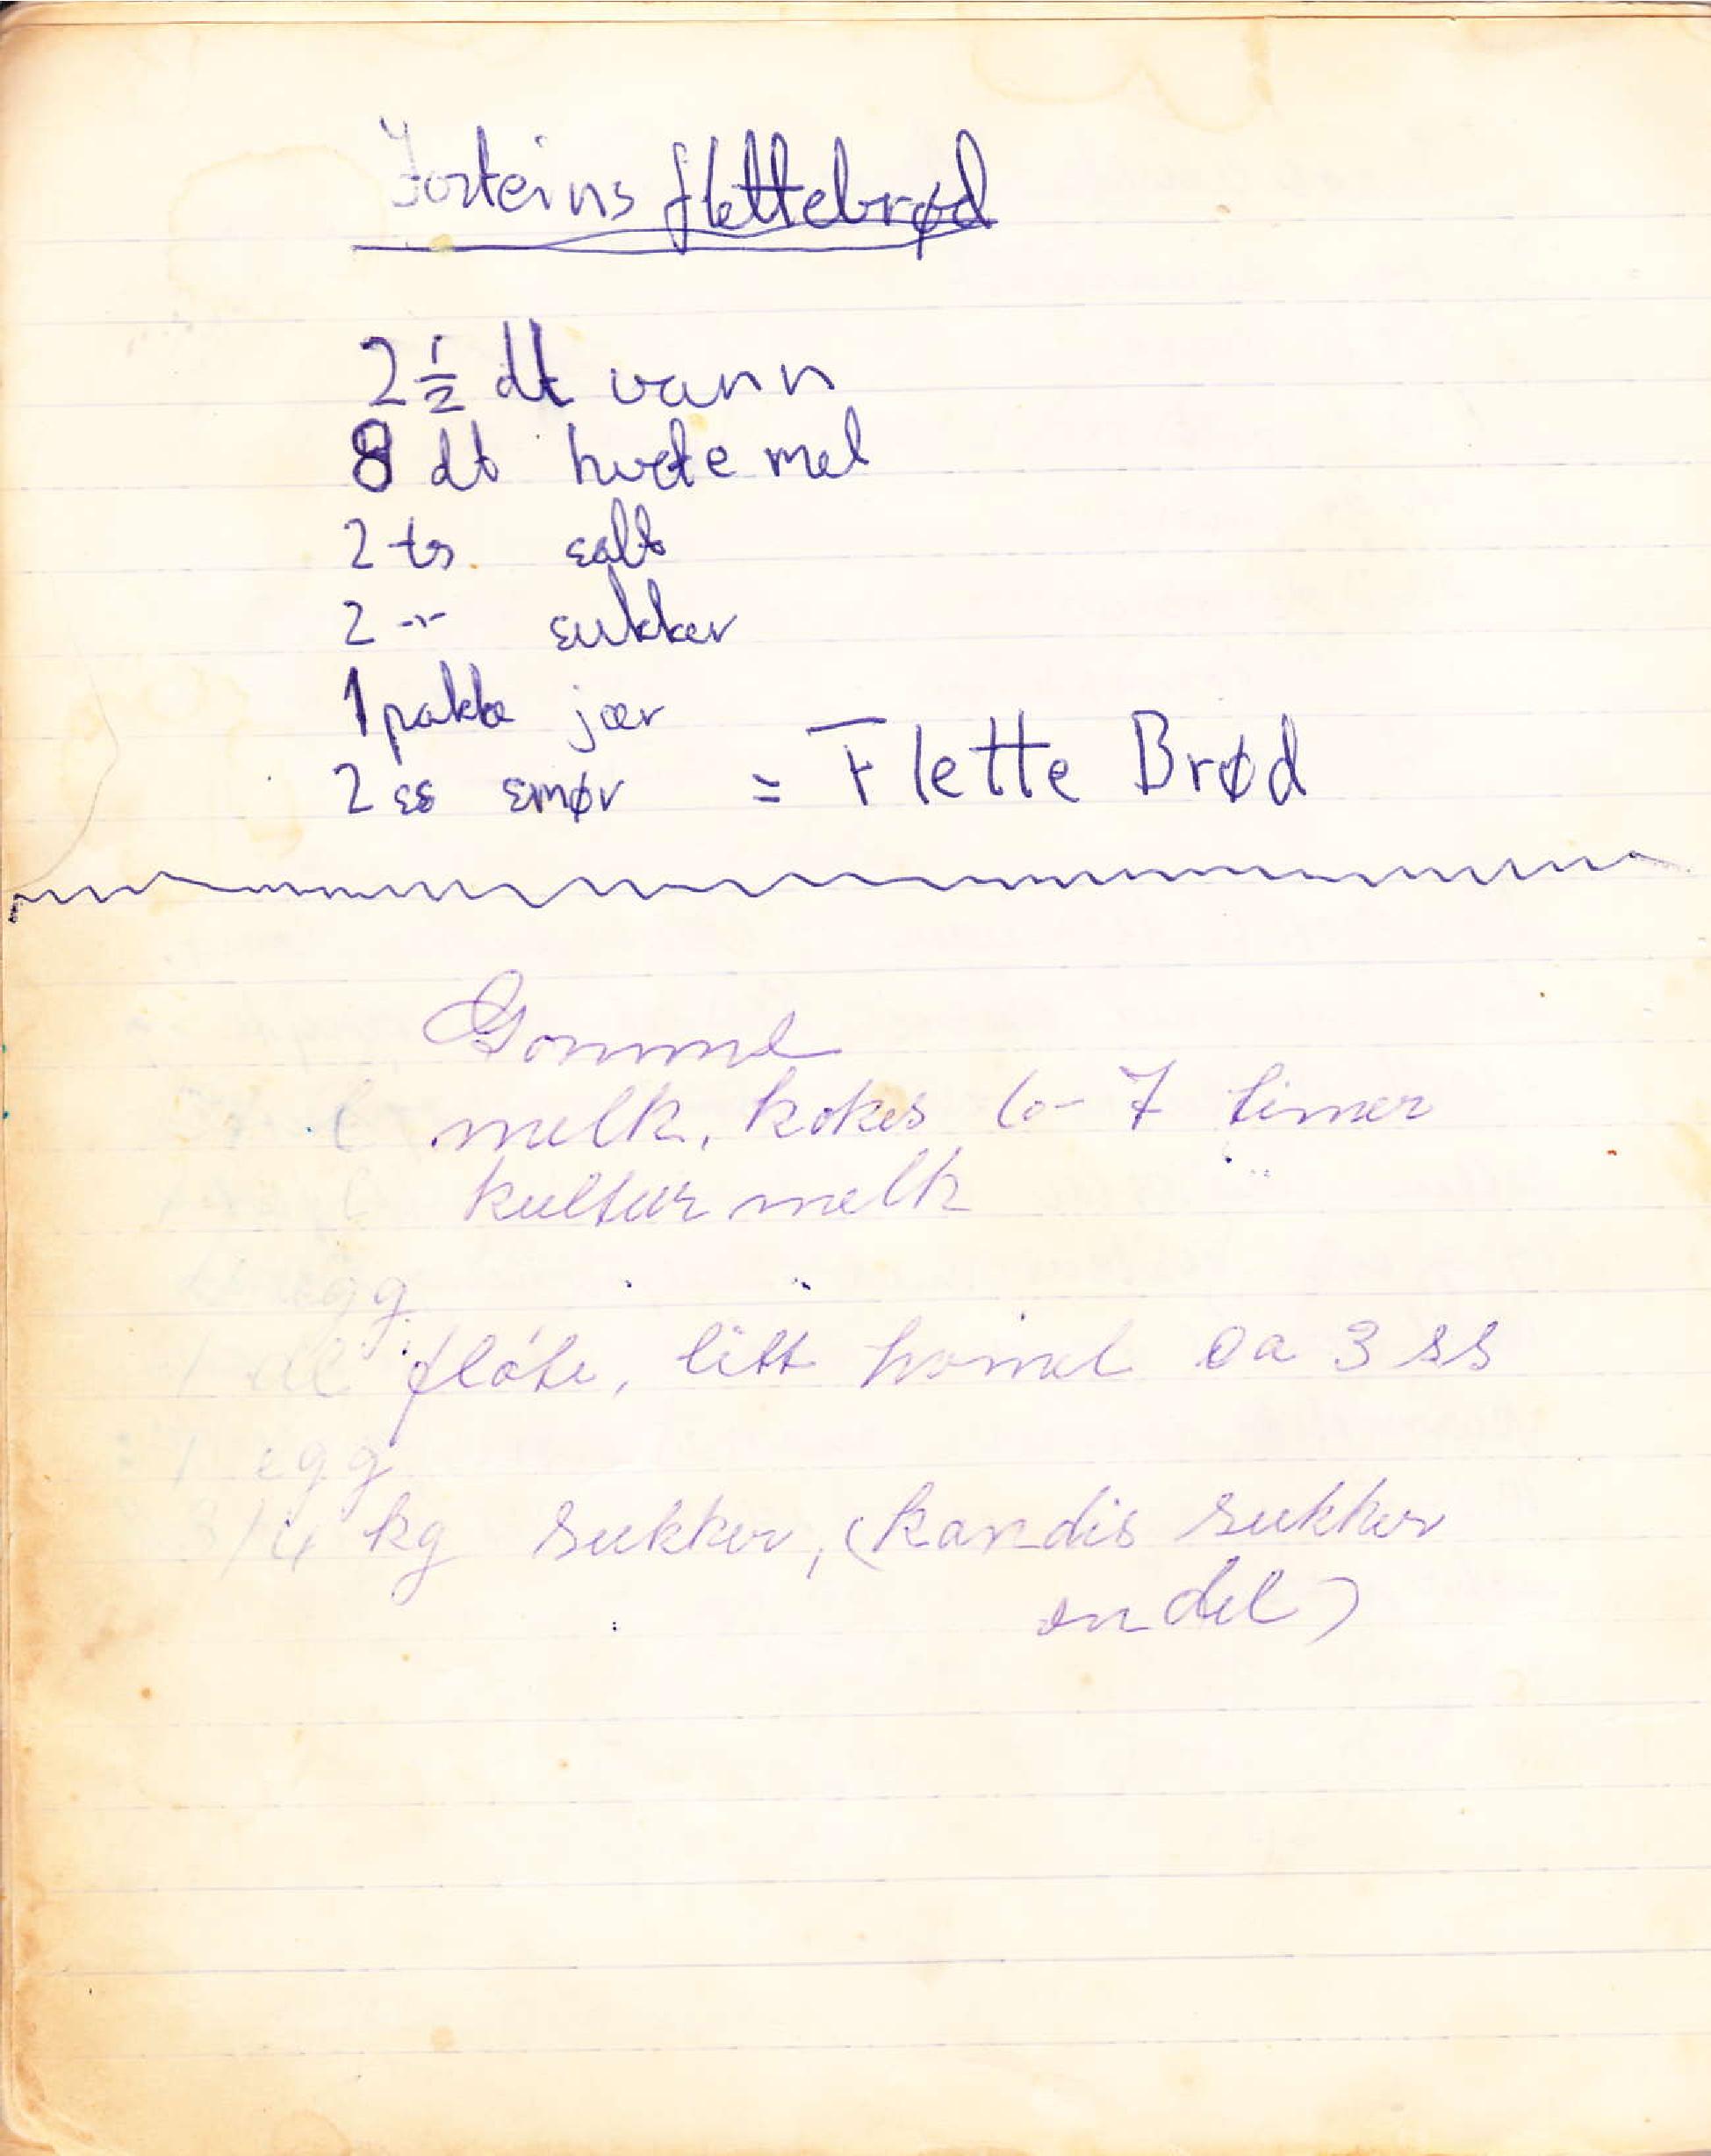 Josteins flettebrød
2 1/2 dl vann
8 dl hvetemel
2 ts salt
2 -"- sukker
1 pakke jær
2 ss smør = Flette Brød
Gomme
l melk, kokes 6-7 timer
kulturmelk
egg
1 dl fløte, litt hvmel ca 3 ss
1 egg
3/4 kg sukker, (kandis sukker
en del)